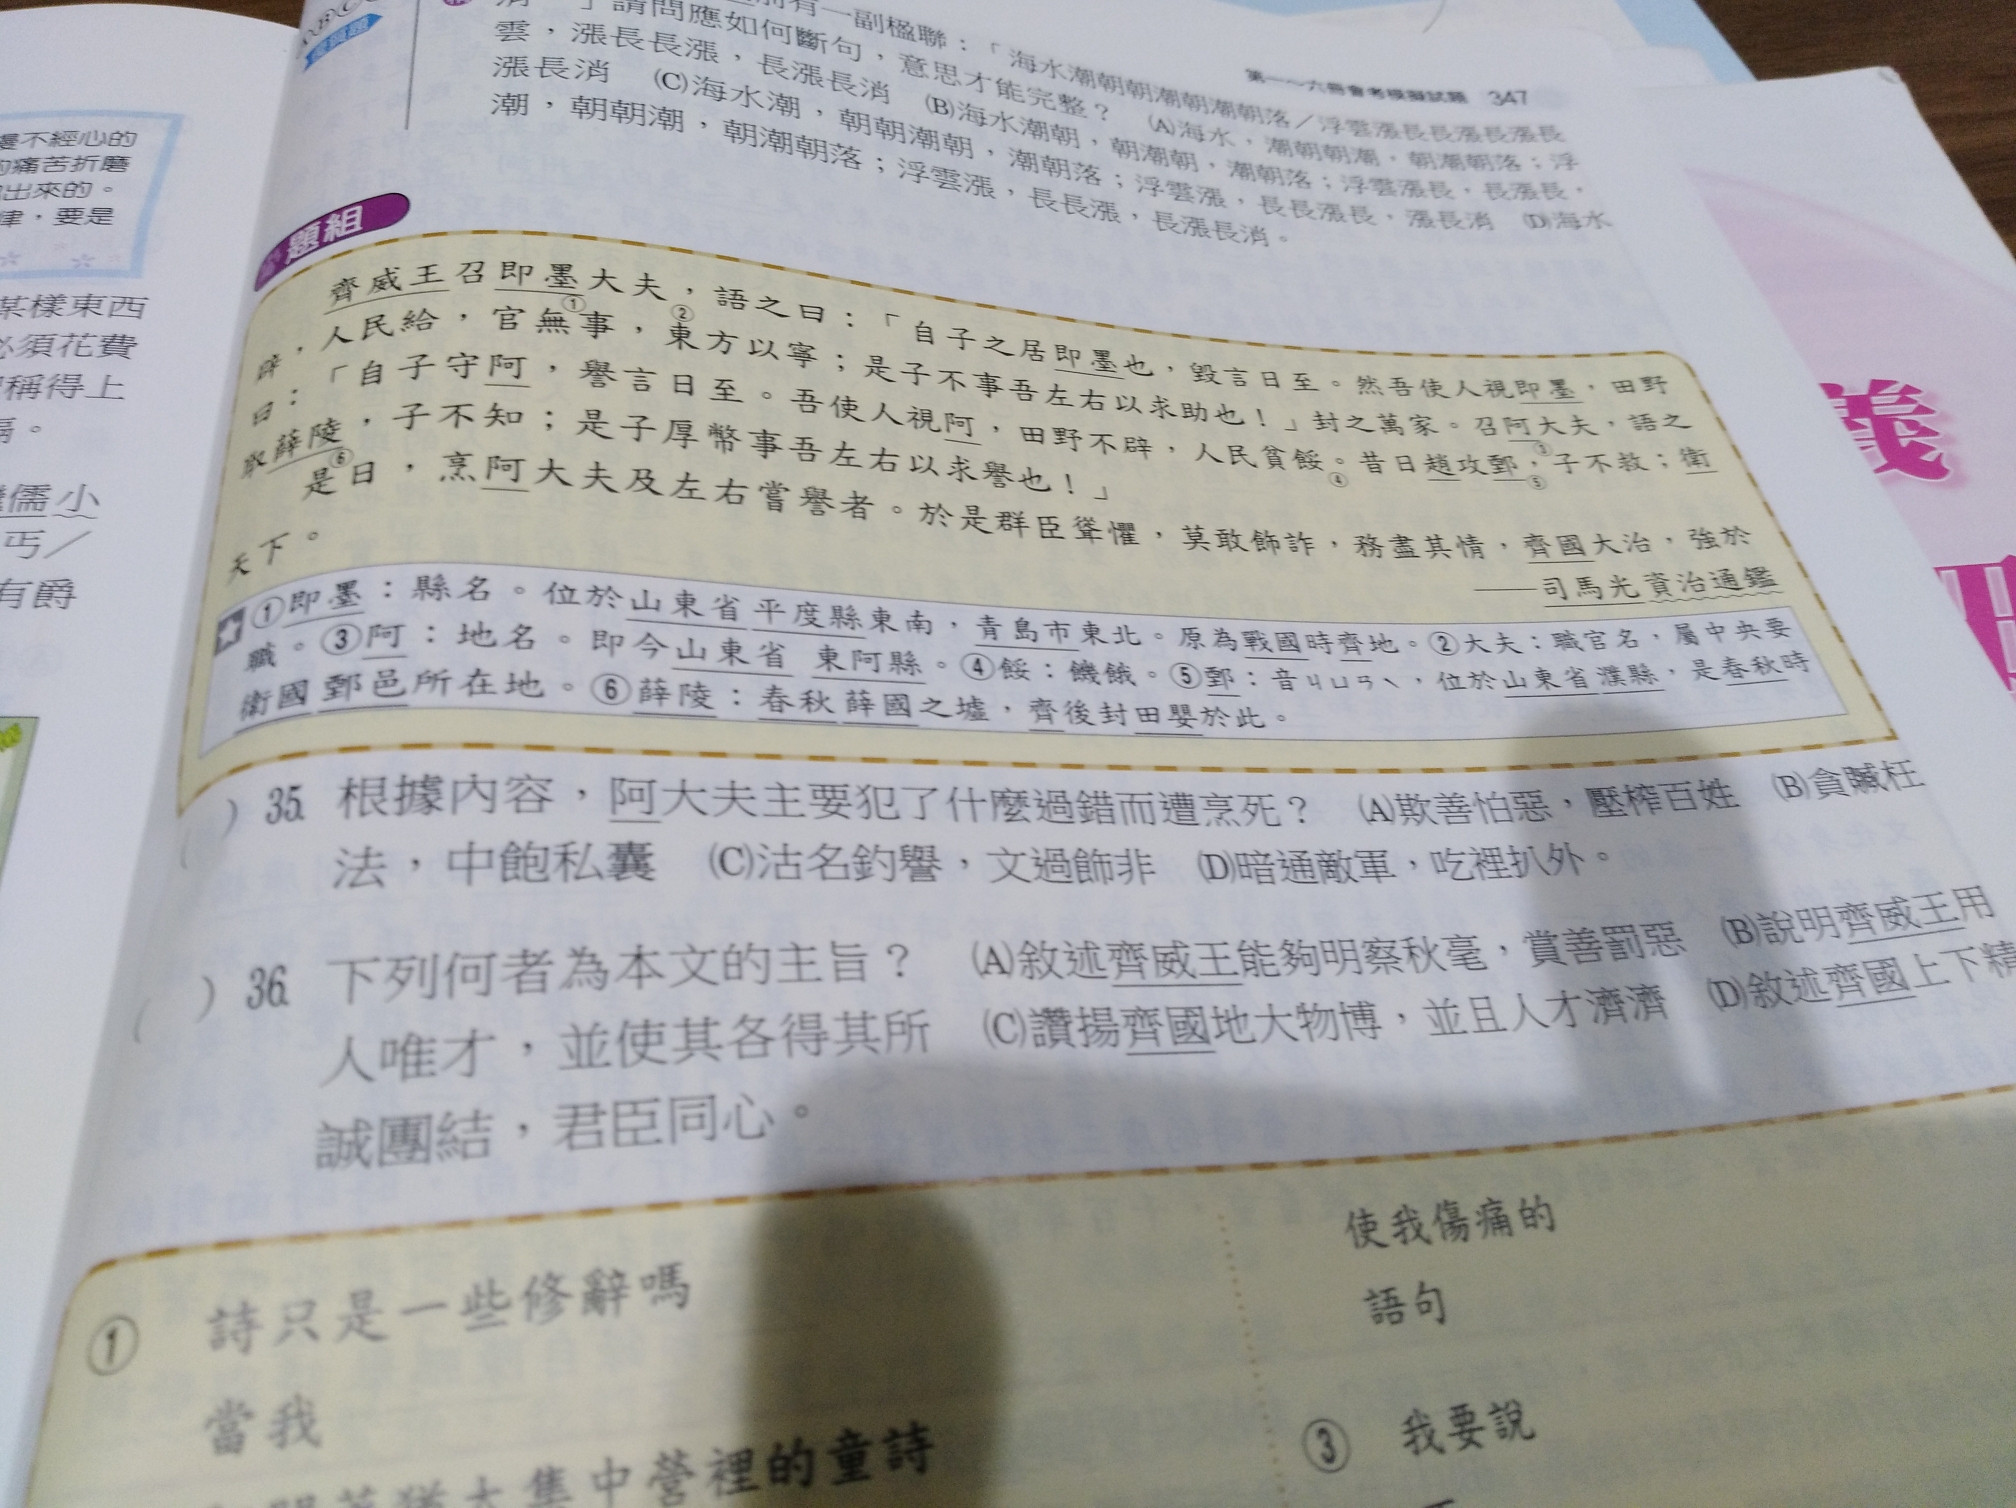 第一～六冊會考模擬試題 347
前有一副楹聯：「海水潮朝朝潮朝潮朝落／浮雲漲長長漲長漲長
消 」請問應如何斷句，意思才能完整？ (A)海水，潮朝朝潮，朝潮朝落；浮
雲，漲長長漲，長漲長消 (B)海水潮朝，朝潮朝，潮朝落；浮雲漲長，長漲長，
漲長消 (C)海水潮，朝朝潮朝，潮朝落；浮雲漲，長長漲長，漲長消 (D)海水
潮，朝朝潮，朝潮朝落；浮雲漲，長長漲，長漲長消。
題組
齊威王召即墨①大夫②，語之曰：「自子之居即墨也，毀言日至。然吾使人視即墨，田野
辟，人民給，官無事，東方以寧；是子不事吾左右以求助也！」封之萬家。召阿③大夫，語之
曰：「自子守阿，譽言日至。吾使人視阿，田野不辟，人民貧餒④。昔日趙攻鄄⑤，子不救；衛
取薛陵⑥，子不知；是子厚幣事吾左右以求譽也！」
是日，烹阿大夫及左右嘗譽者。於是群臣聳懼，莫敢飾詐，務盡其情，齊國大治，強於
天下。
——司馬光資治通鑑
★①即墨：縣名。位於山東省平度縣東南，青島市東北。原為戰國時齊地。②大夫：職官名，屬中央要
職。③阿：地名。即今山東省 東阿縣。④餒：饑餓。⑤鄄：音ㄐㄩㄢˋ，位於山東省濮縣，是春秋時
衛國鄄邑所在地。⑥薛陵：春秋薛國之墟，齊後封田嬰於此。
( ) 35. 根據內容，阿大夫主要犯了什麼過錯而遭烹死？ (A)欺善怕惡，壓榨百姓 (B)貪贓枉
法，中飽私囊 (C)沽名釣譽，文過飾非 (D)暗通敵軍，吃裡扒外。
( ) 36. 下列何者為本文的主旨？ (A)敘述齊威王能夠明察秋毫，賞善罰惡 (B)說明齊威王用
人唯才，並使其各得其所 (C)讚揚齊國地大物博，並且人才濟濟 (D)敘述齊國上下精
誠團結，君臣同心。
① 詩只是一些修辭嗎
當我
集中營裡的童詩
使我傷痛的
語句
③ 我要說
漫不經心的
痛苦折磨
出來的。
律，要是
某樣東西
必須花費
稱得上
儒小
丐／
有爵
義